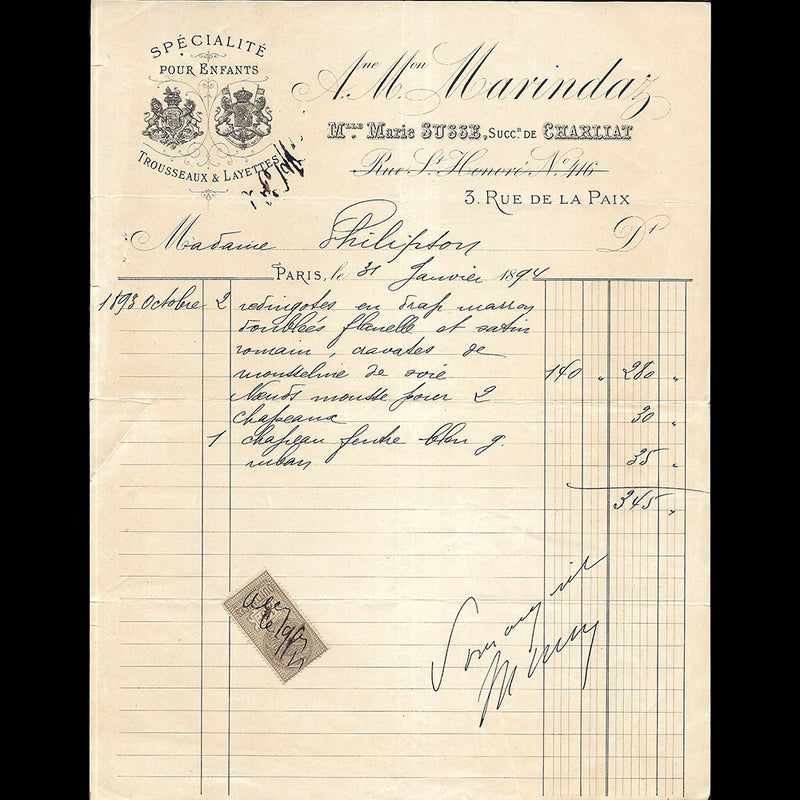 SPÉCIALITÉ
POUR ENFANTS
TROUSSEAUX & LAYETTES
Ane Mon Marindaz
Mlle Marie SUSSE, Succr. DE CHARLIAT
Rue St. Honoré No. 416
3. RUE DE LA PAIX
Madame Philipson Dt
PARIS, le 31 Janvier 1894
1893 Octobre 2 redingotes en drap marron
doublées flanelle et satin
romain, cravates de
mousseline de soie 140 " 280 "
Nœuds mousse pour 2
chapeaux 30 "
1 chapeau feutre bleu g.
ruban 35 "
345 "